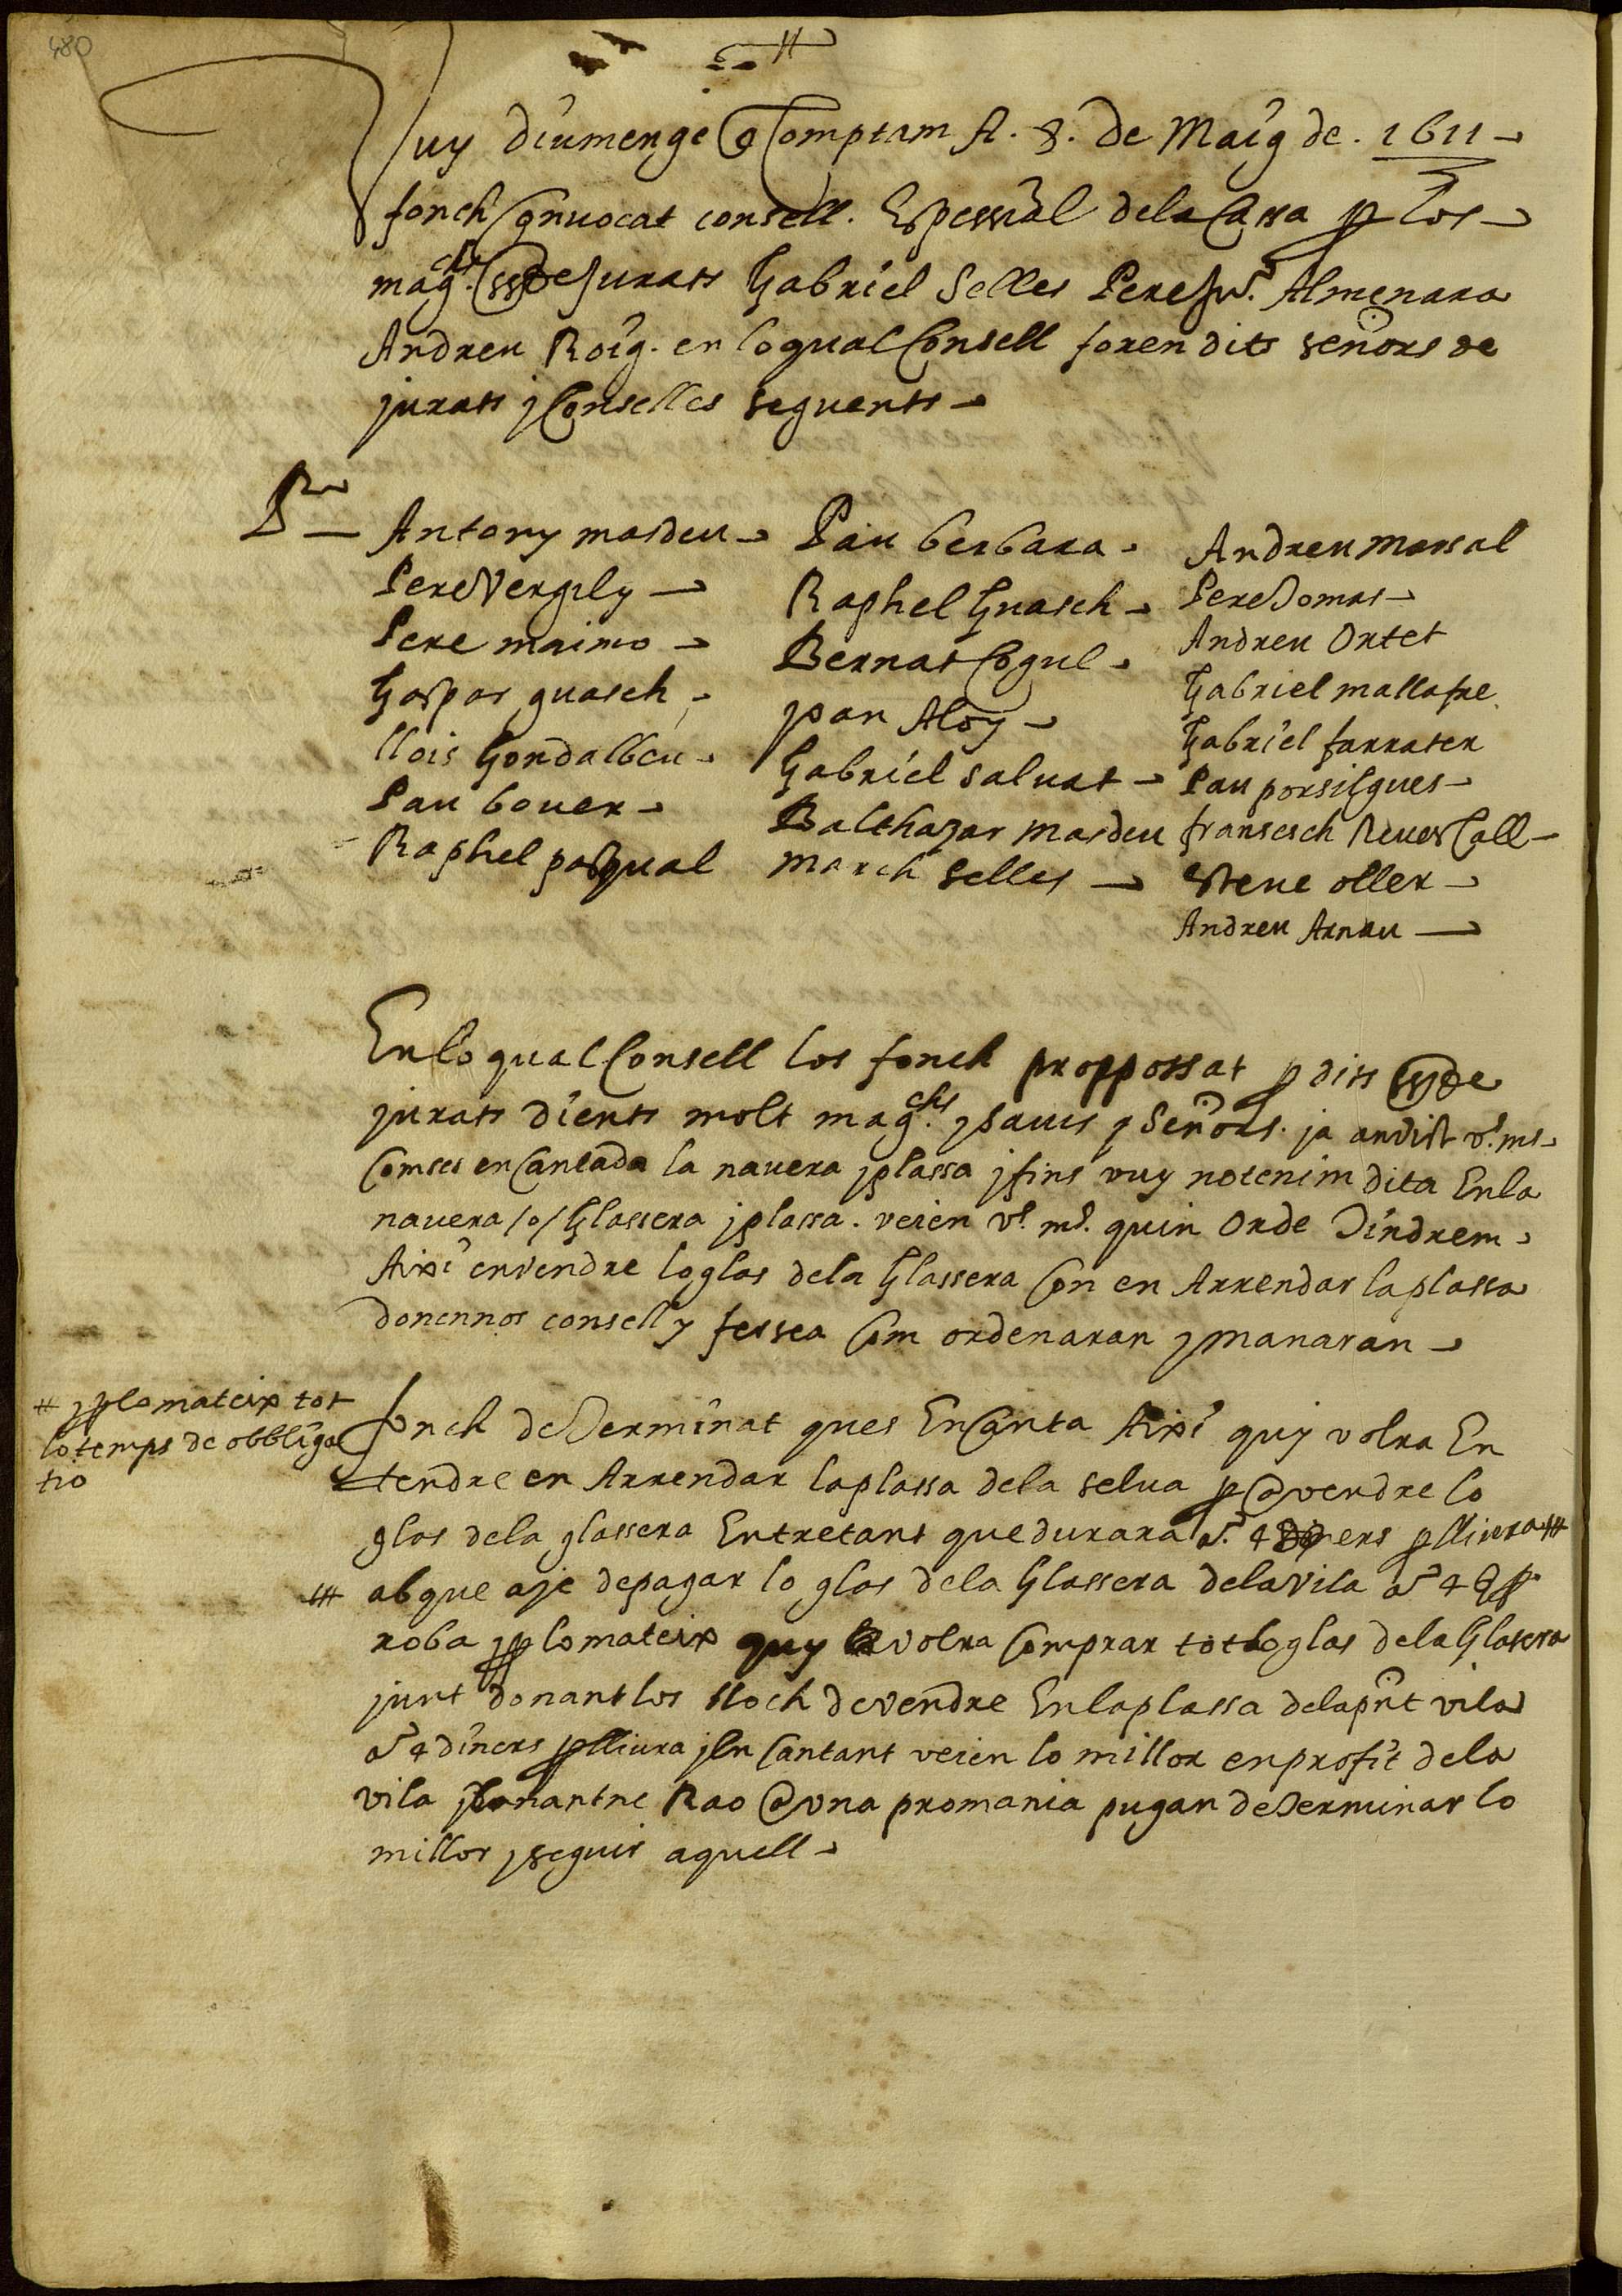 480
Vuy diumenge Comptam A. 8. de Maig de. 1611
fonch Convocat consell. Espessial dela Cassa p los
magchs. SSrs de Jurats Gabriel Selles Pere Jua. Almenara
Andreu Roig. en lo qual Consell foren dits señors de
jurats y Conselles seguents
Po
Antony masdeu
Pere Vergily
Pere maimo
Gaspar guasch
llois Gondalbeu
Pau bover
Raphel pasqual
Pau berbara
Raphel Guasch
Bernat Cogul
joan Aloy
Gabriel salvat
Balthazar masdeu
March Selles
Andreu Massal
Pere Domas
Andreu Ortet
Gabriel mallafre
Gabriel farrater
Pau porsisgues
fransesch Revescall
Steve oller
Andreu Arnau
En lo qual Consell los fonch proppossat p dits SSrs de
jurats dients molt magchs. y savis y Señors. ja an vist vs. ms.
Com ses en Cantada la navera y plassa y fins vuy no tenim dita En la
navera /o/ Glassera y plassa. veien vs. ms. quin Orde Tindrem
Aixi en vendre lo glas dela Glassera Com en Arrendar la plassa
donennos consell y fersea Com ordenaran y manaran
fonch determinat ques En Canta Aixi quy volra En
tendre en Arrendar la plassa dela selva p a vendre lo
glas dela glassera Entretant que durara a. 4 diners p lliura #
# y p lo mateix tot
lo temps de obbliga
tio
# ab que aje de pagar lo glas dela Glassera dela vila a 4 p
roba y p lo mateix quy volra Comprar tot lo glas dela Glasera
junt donantlos lloch de vendre En la plassa dela pnt vila
a 4 diners p lliura y En Cantant veien lo millor en profit dela
vila y donantne Rao a una promania pugan determinar lo
millor y seguir aquell